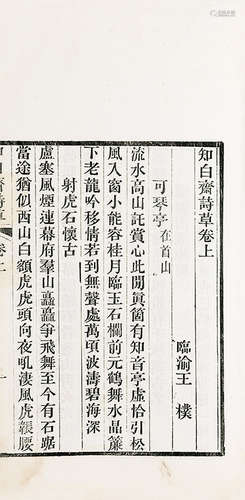 知白齋詩草卷上
臨渝王樸
可琴亭在首山
流水高山託賞心此閒眞箇有知音亭虛恰引松
風入窗小能容桂月臨玉石欄前元鶴舞水晶簾
下老龍吟移情若到無聲處萬頃波濤碧海深
射虎石懷古
盧塞風煙連幕府羣山矗矗爭飛舞至今有石踞
當途猶似西山白額虎虎頭向夜吼淒風虎韔腰
知白齋詩草
卷上
一